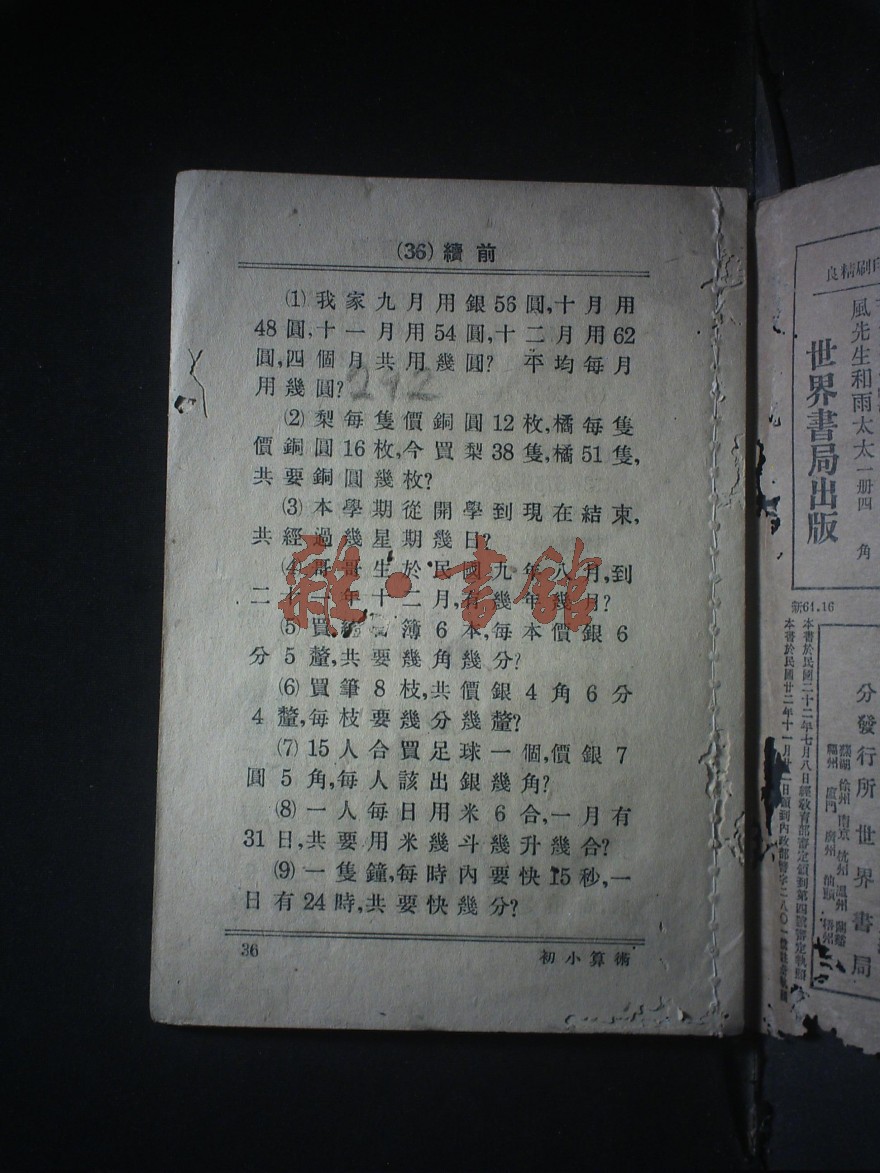 (36) 續前
(1) 我家九月用銀56圓,十月用
48圓,十一月用54圓,十二月用62
圓,四個月共用幾圓? 平均每月
用幾圓? 292
(2) 梨每隻價銅圓12枚,橘每隻
價銅圓16枚,今買梨38隻,橘51隻,
共要銅圓幾枚?
(3) 本學期從開學到現在結束,
共經過幾星期幾日?
(4) 哥哥生於民國九年八月,到
二十一年十二月,有幾年幾月?
(5) 買 簿6本,每本價銀6
分5釐,共要幾角幾分?
(6) 買筆8枝,共價銀4角6分
4釐,每枝要幾分幾釐?
(7) 15人合買足球一個,價銀7
圓5角,每人該出銀幾角?
(8) 一人每日用米6合,一月有
31日,共要用米幾斗幾升幾合?
(9) 一隻鐘,每時內要快15秒,一
日有24時,共要快幾分?
36 初小算術
雜·書館
良精刷印
風先生和雨太太一册四角
世界書局出版
新61.16
本書於民國二十二年七月八日經敎育部審定領到第四號審定執照
本書於民國廿二年十一月廿一日領到內政部警字二八〇一號註冊執照
分發行所世界書局
蕪湖 徐州 南京 杭州 温州 蘭谿
福州 廈門 廣州 汕頭 梧州